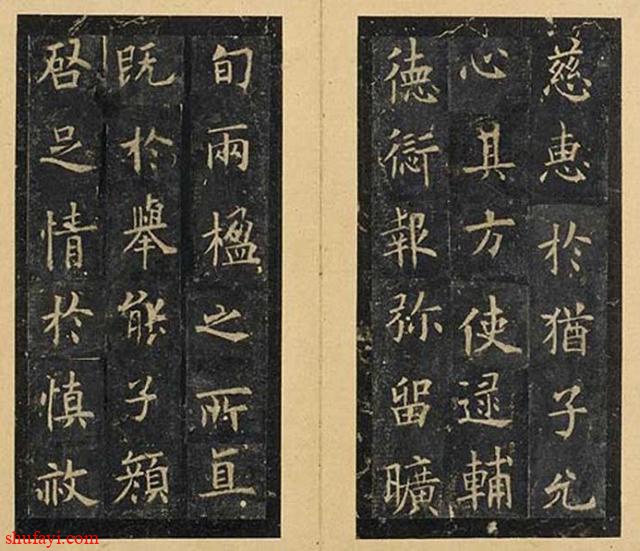 慈惠於猶子允
心其方使逯輔
徳愆報弥留曠
旬兩楹之所直
既於舉能子顏
啓足情於慎
shufayi.com